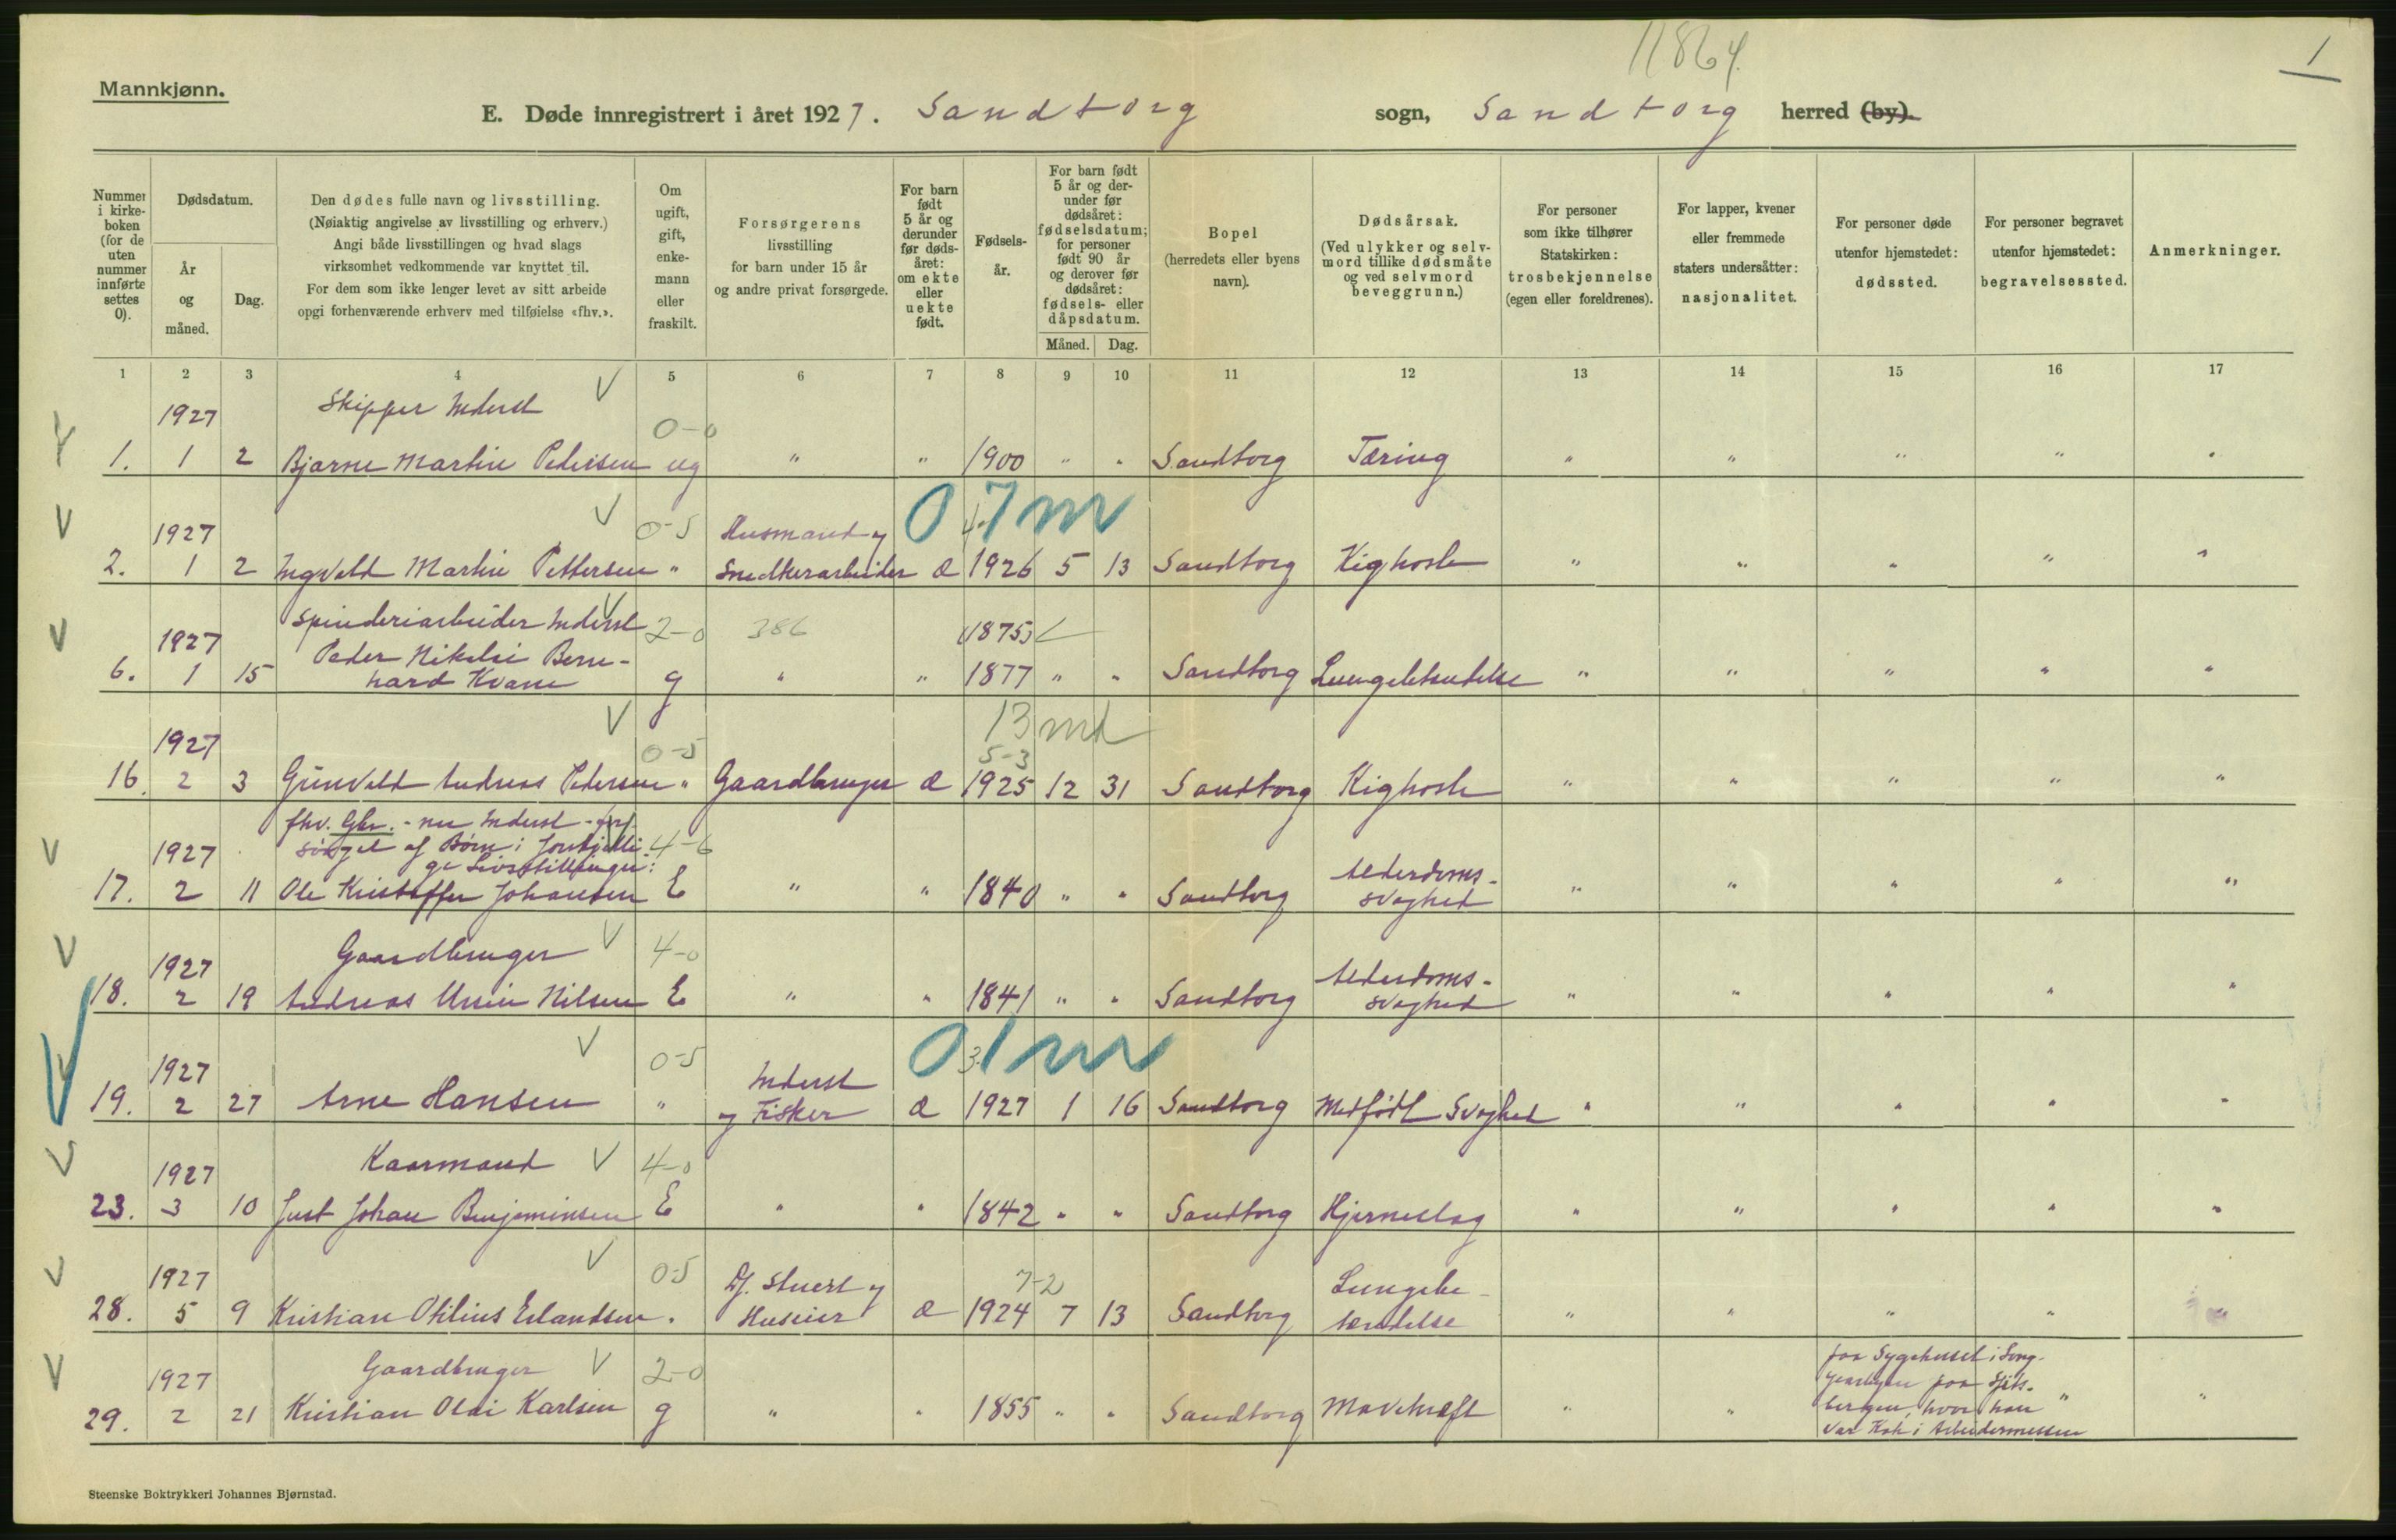 11864.
1
Mannkjønn.
E. Døde innregistrert i året 1927. Sandtorg sogn, Sandtorg herred (by).
Nummer i kirkeboken (for de uten nummer innførte settes 0).
Dødsdatum.
År og måned.
Dag.
Den dødes fulle navn og livsstilling.
(Nøiaktig angivelse av livsstilling og erhverv.)
Angi både livsstillingen og hvad slags
virksomhet vedkommende var knyttet til.
For dem som ikke lenger levet av sitt arbeide
opgi forhenværende erhverv med tilføielse «fhv.».
Om ugift, gift, enkemann eller fraskilt.
Forsørgerens
livsstilling
for barn under 15 år
og andre privat forsørgede.
For barn født 5 år og derunder før dødsåret: om ekte eller uekte født.
Fødselsår.
For barn født 5 år og derunder før dødsåret: fødselsdatum; for personer født 90 år og derover før dødsåret: fødsels- eller dåpsdatum.
Måned.
Dag.
Bopel
(herredets eller byens
navn).
Dødsårsak.
(Ved ulykker og selvmord tillike dødsmåte og ved selvmord beveggrunn.)
For personer
som ikke tilhører
Statskirken:
trosbekjennelse
(egen eller foreldrenes).
For lapper, kvener
eller fremmede
staters undersåtter:
nasjonalitet.
For personer døde
utenfor hjemstedet:
dødssted.
For personer begravet
utenfor hjemstedet:
begravelsessted.
Anmerkninger.
1 2 3 4 5 6 7 8 9 10 11 12 13 14 15 16 17
1927 Skipper Inderst 0-0
1. 1 2 Bjarne Martin Pedersen ug " " 1900 " " Sandtorg Tæring " " " " "
1927 0-5 Husmand og 0 4. 7 m
2. 1 2 Ingvald Martin Pettersen " Snedkerarbeider Æ 1926 5 13 Sandtorg Kighoste " " " " "
Spinderiarbeider Inderst 2-0 386 (1875)
1927 Peder Nikolai Bern-
6. 1 15 hard Kvane g " " 1877 " " Sandtorg Lungebetændelse " " " " "
13 md
1927 0-5 5-3
16. 2 3 Grünvald Andreas Pedersen " Gaardbruger Æ 1925 12 31 Sandtorg Kighoste " " " " "
fhv. Gbr. - nu Inderst - for-
1927 sørget af Børn i forskjelli- 4-6
ge Livsstillinger: Alderdoms-
17. 2 11 Ole Kristoffer Johansen E " " 1840 " " Sandtorg svaghed " " " " "
1927 Gaardbruger 4-0 Alderdoms-
18. 2 19 Andreas Ursin Nilsen E " " 1841 " " Sandtorg svaghed " " " " "
1927 0-5 Inderst 0 3. 1 m
19. 2 27 Arne Hansen " og Fisker Æ 1927 1 16 Sandtorg Medfødt Svaghed " " " " "
1927 Kaarmand 4-0
23. 3 10 Just Johan Benjaminsen E " " 1842 " " Sandtorg Hjerneslag " " " " "
1927 0-5 Stuert og 7-2 Lungebe-
28. 5 9 Kristian Otilius Erlandsen " Huseier Æ 1924 7 13 Sandtorg tændelse " " " "
1927 Gaardbruger 2-0 paa Sygehuset i Long-
yearbyen paa Spits-
29. 2 21 Kristian Olai Karlsen g " " 1855 " " Sandtorg Mavekræft " " bergen, hvor han " "
var Kok i Arbeidermessen
Steenske Boktrykkeri Johannes Bjørnstad.